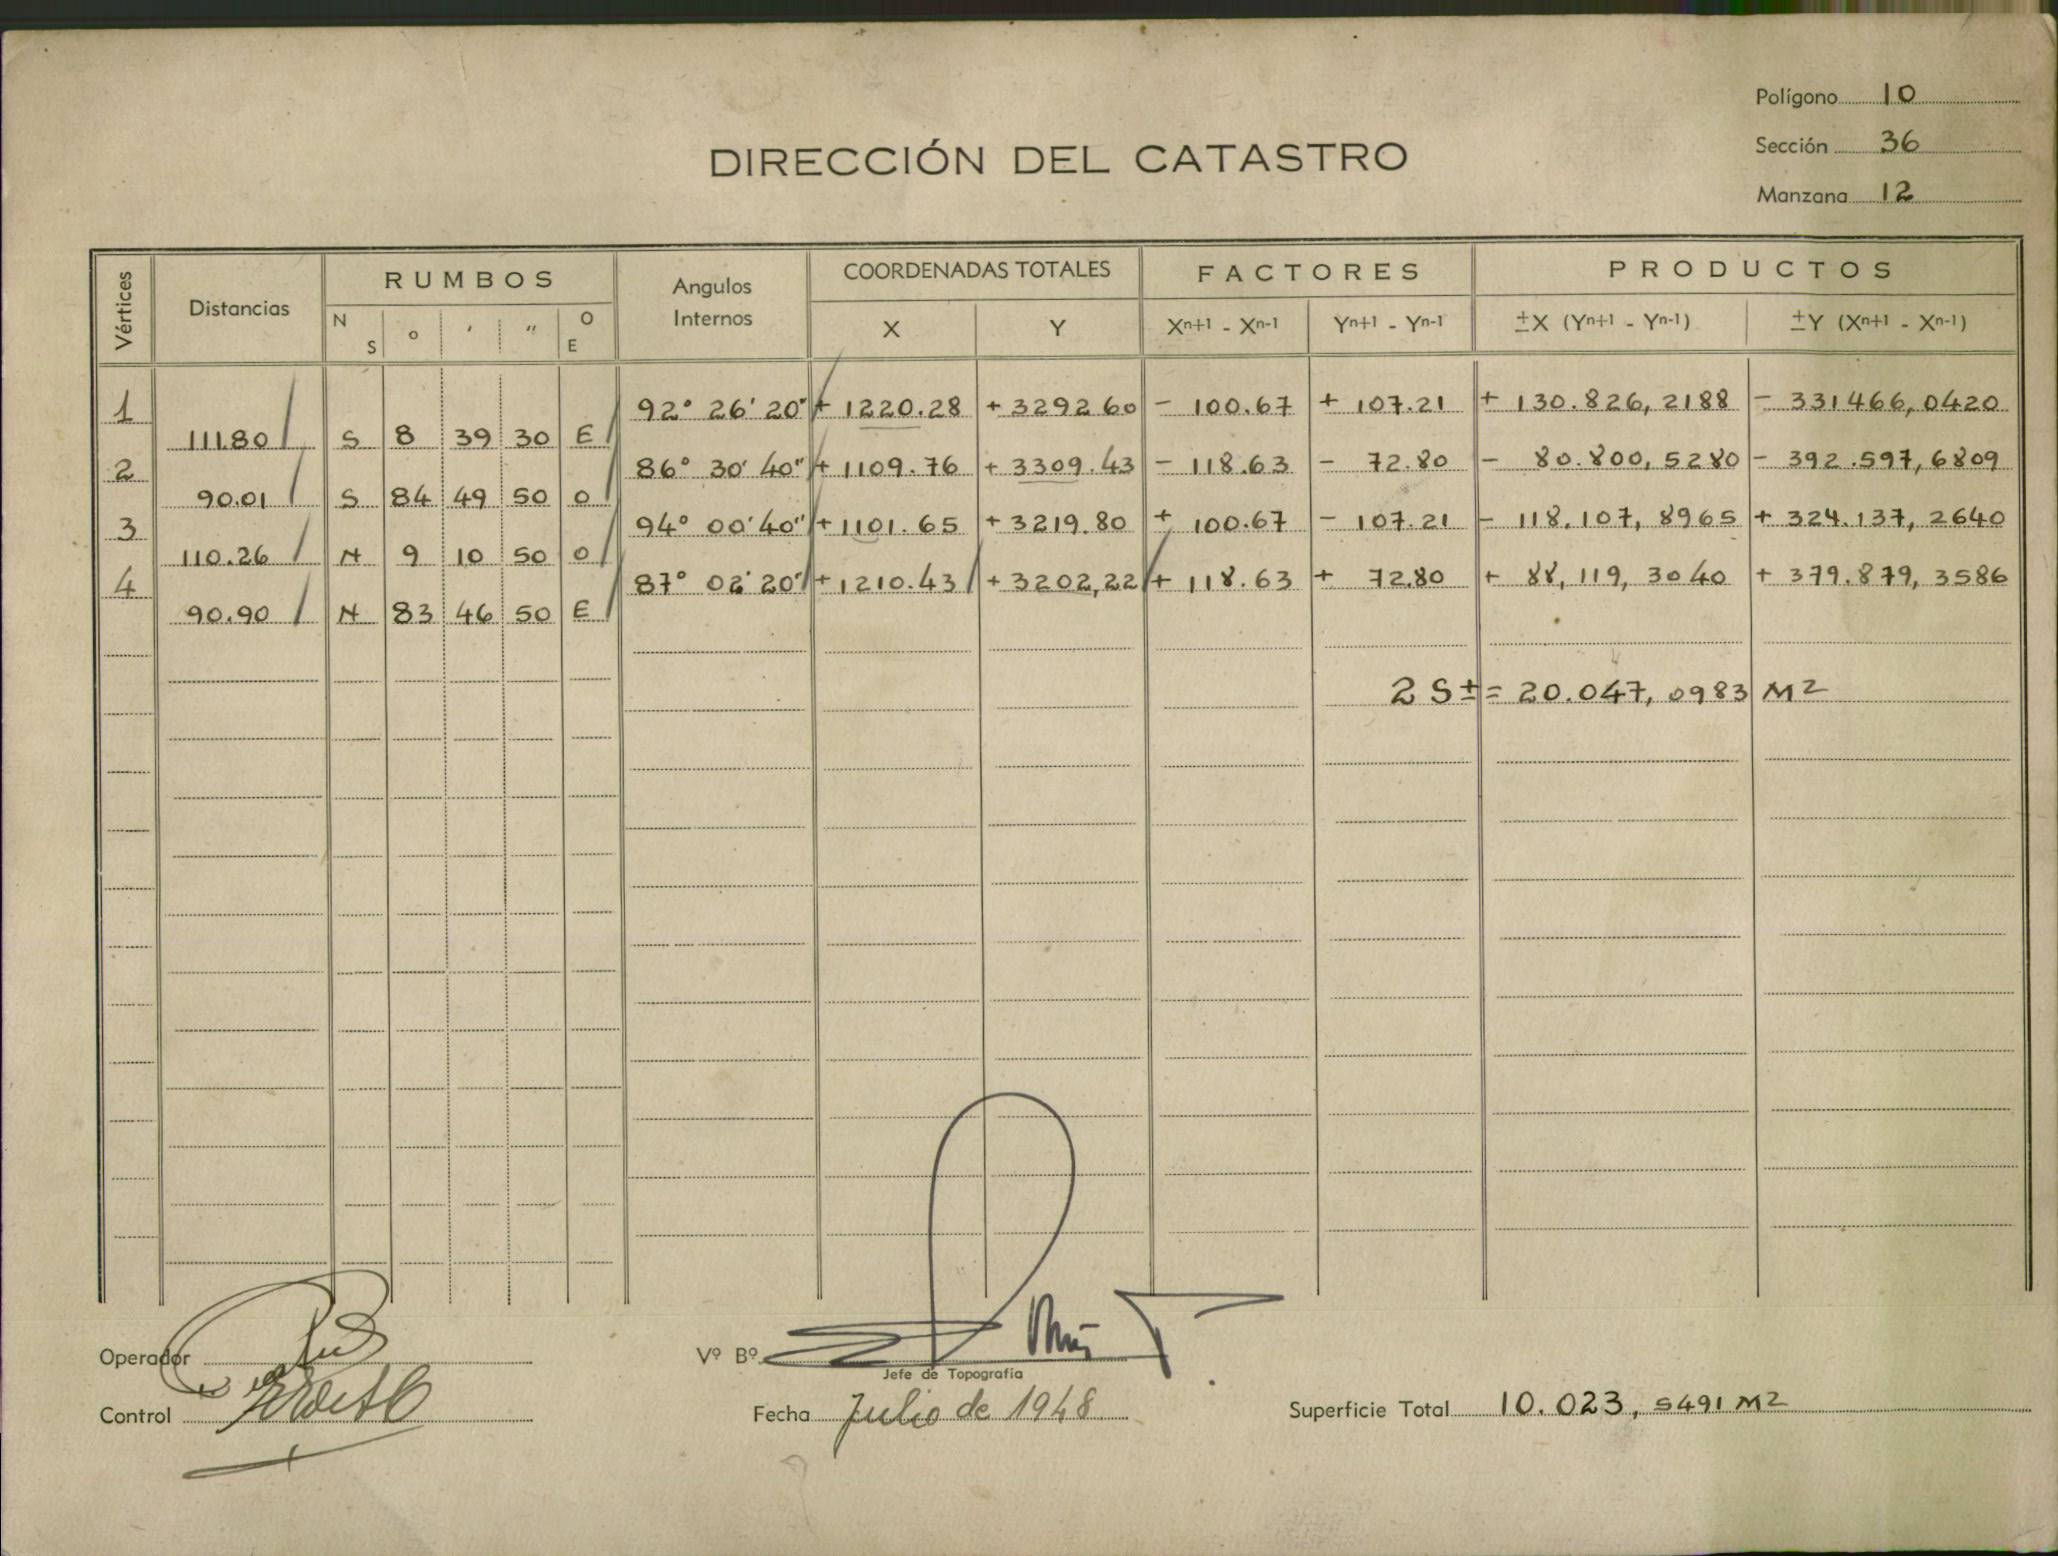 Polígono 10
DIRECCIÓN DEL CATASTRO
Sección 36
Manzana 12
Vértices Distancias RUMBOS Angulos Internos COORDENADAS TOTALES FACTORES PRODUCTOS
N S o ' " O E X Y Xn+1 - Xn-1 Yn+1 - Yn-1 ±X (Yn+1 - Yn-1) ±Y (Xn+1 - Xn-1)
1 92° 26' 20" + 1220.28 + 3292.60 - 100.67 + 107.21 + 130.826,2188 - 331466,0420
111.80 S 8 39 30 E
2 86° 30' 40" + 1109.76 + 3309.43 - 118.63 - 72.80 - 80.800,5280 - 392.597,6809
90.01 S 84 49 50 O
3 94° 00' 40" + 1101.65 + 3219.80 + 100.67 - 107.21 - 118.107,8965 + 324.137,2640
110.26 N 9 10 50 O
4 87° 02' 20" + 1210.43 + 3202,22 + 118.63 + 72.80 + 88,119,3040 + 379.879,3586
90.90 N 83 46 50 E
2 S± = 20.047,0983 M2
Operador
Vº Bº
Jefe de Topografía
Control
Fecha Julio de 1948
Superficie Total 10.023,5491 M2